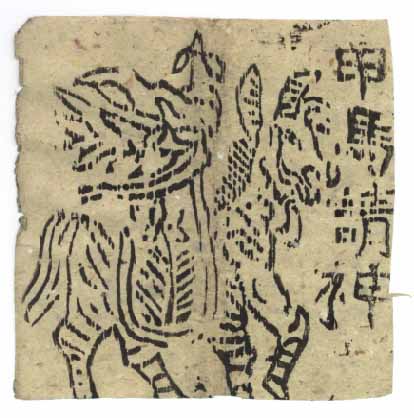 甲馬請神